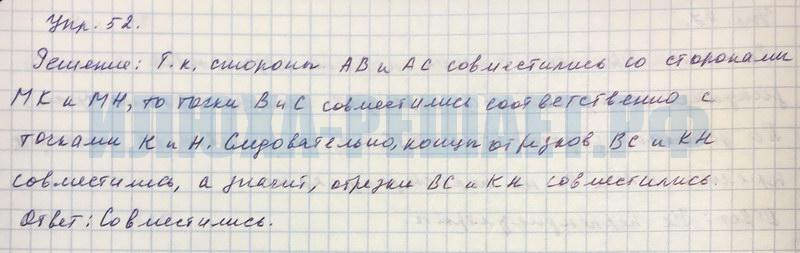 Упр. 52.
Решение: Т.к. стороны АВ и АС совместились со сторонами
МК и МН, то точки В и С совместились соответственно с
точками К и Н. Следовательно, концы отрезков ВС и КН
совместились, а значит, отрезки ВС и КН совместились.
Ответ: Совместились.